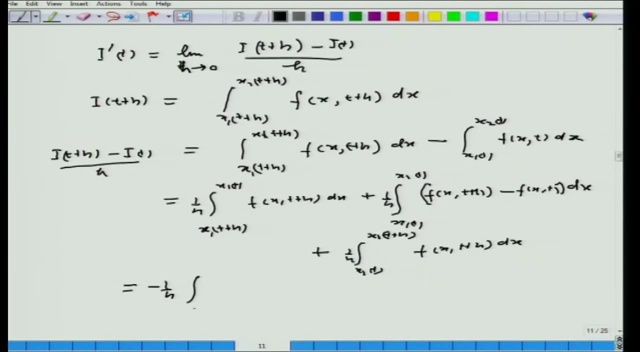 Insert Actions Tools Help
B
I'(t) = lim h→0 (I(t+h) - I(t))/h
I(t+h) = ∫_{x₁(t+h)}^{x₂(t+h)} f(x, t+h) dx
(I(t+h) - I(t))/h = ∫_{x₁(t+h)}^{x₂(t+h)} f(x, t+h) dx - ∫_{x₁(t)}^{x₂(t)} f(x, t) dx
= 1/h ∫_{x₁(t+h)}^{x₁(t)} f(x, t+h) dx + 1/h ∫_{x₁(t)}^{x₂(t)} (f(x, t+h) - f(x, t)) dx
+ 1/h ∫_{x₂(t)}^{x₂(t+h)} f(x, t+h) dx
= -1/h ∫
11 / 25
11